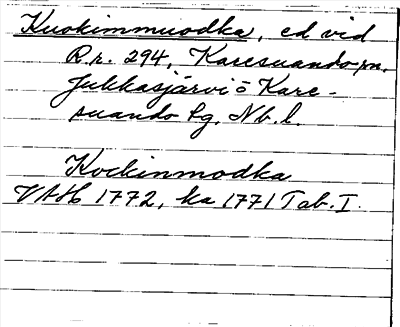 Kuokimmuodka, ed vid
R.r. 294, Karesuando sn.
Jukkasjärvi o Kare-
suando lg, Nb. l.
Kockinmodka
VAH 1772, ka 1771 Tab. I.